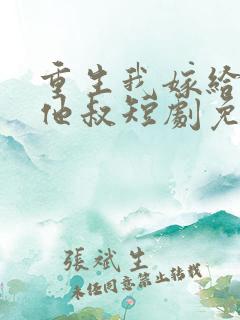 重生我嫁给
他叔短劇免
張斌生
未经同意禁止转载